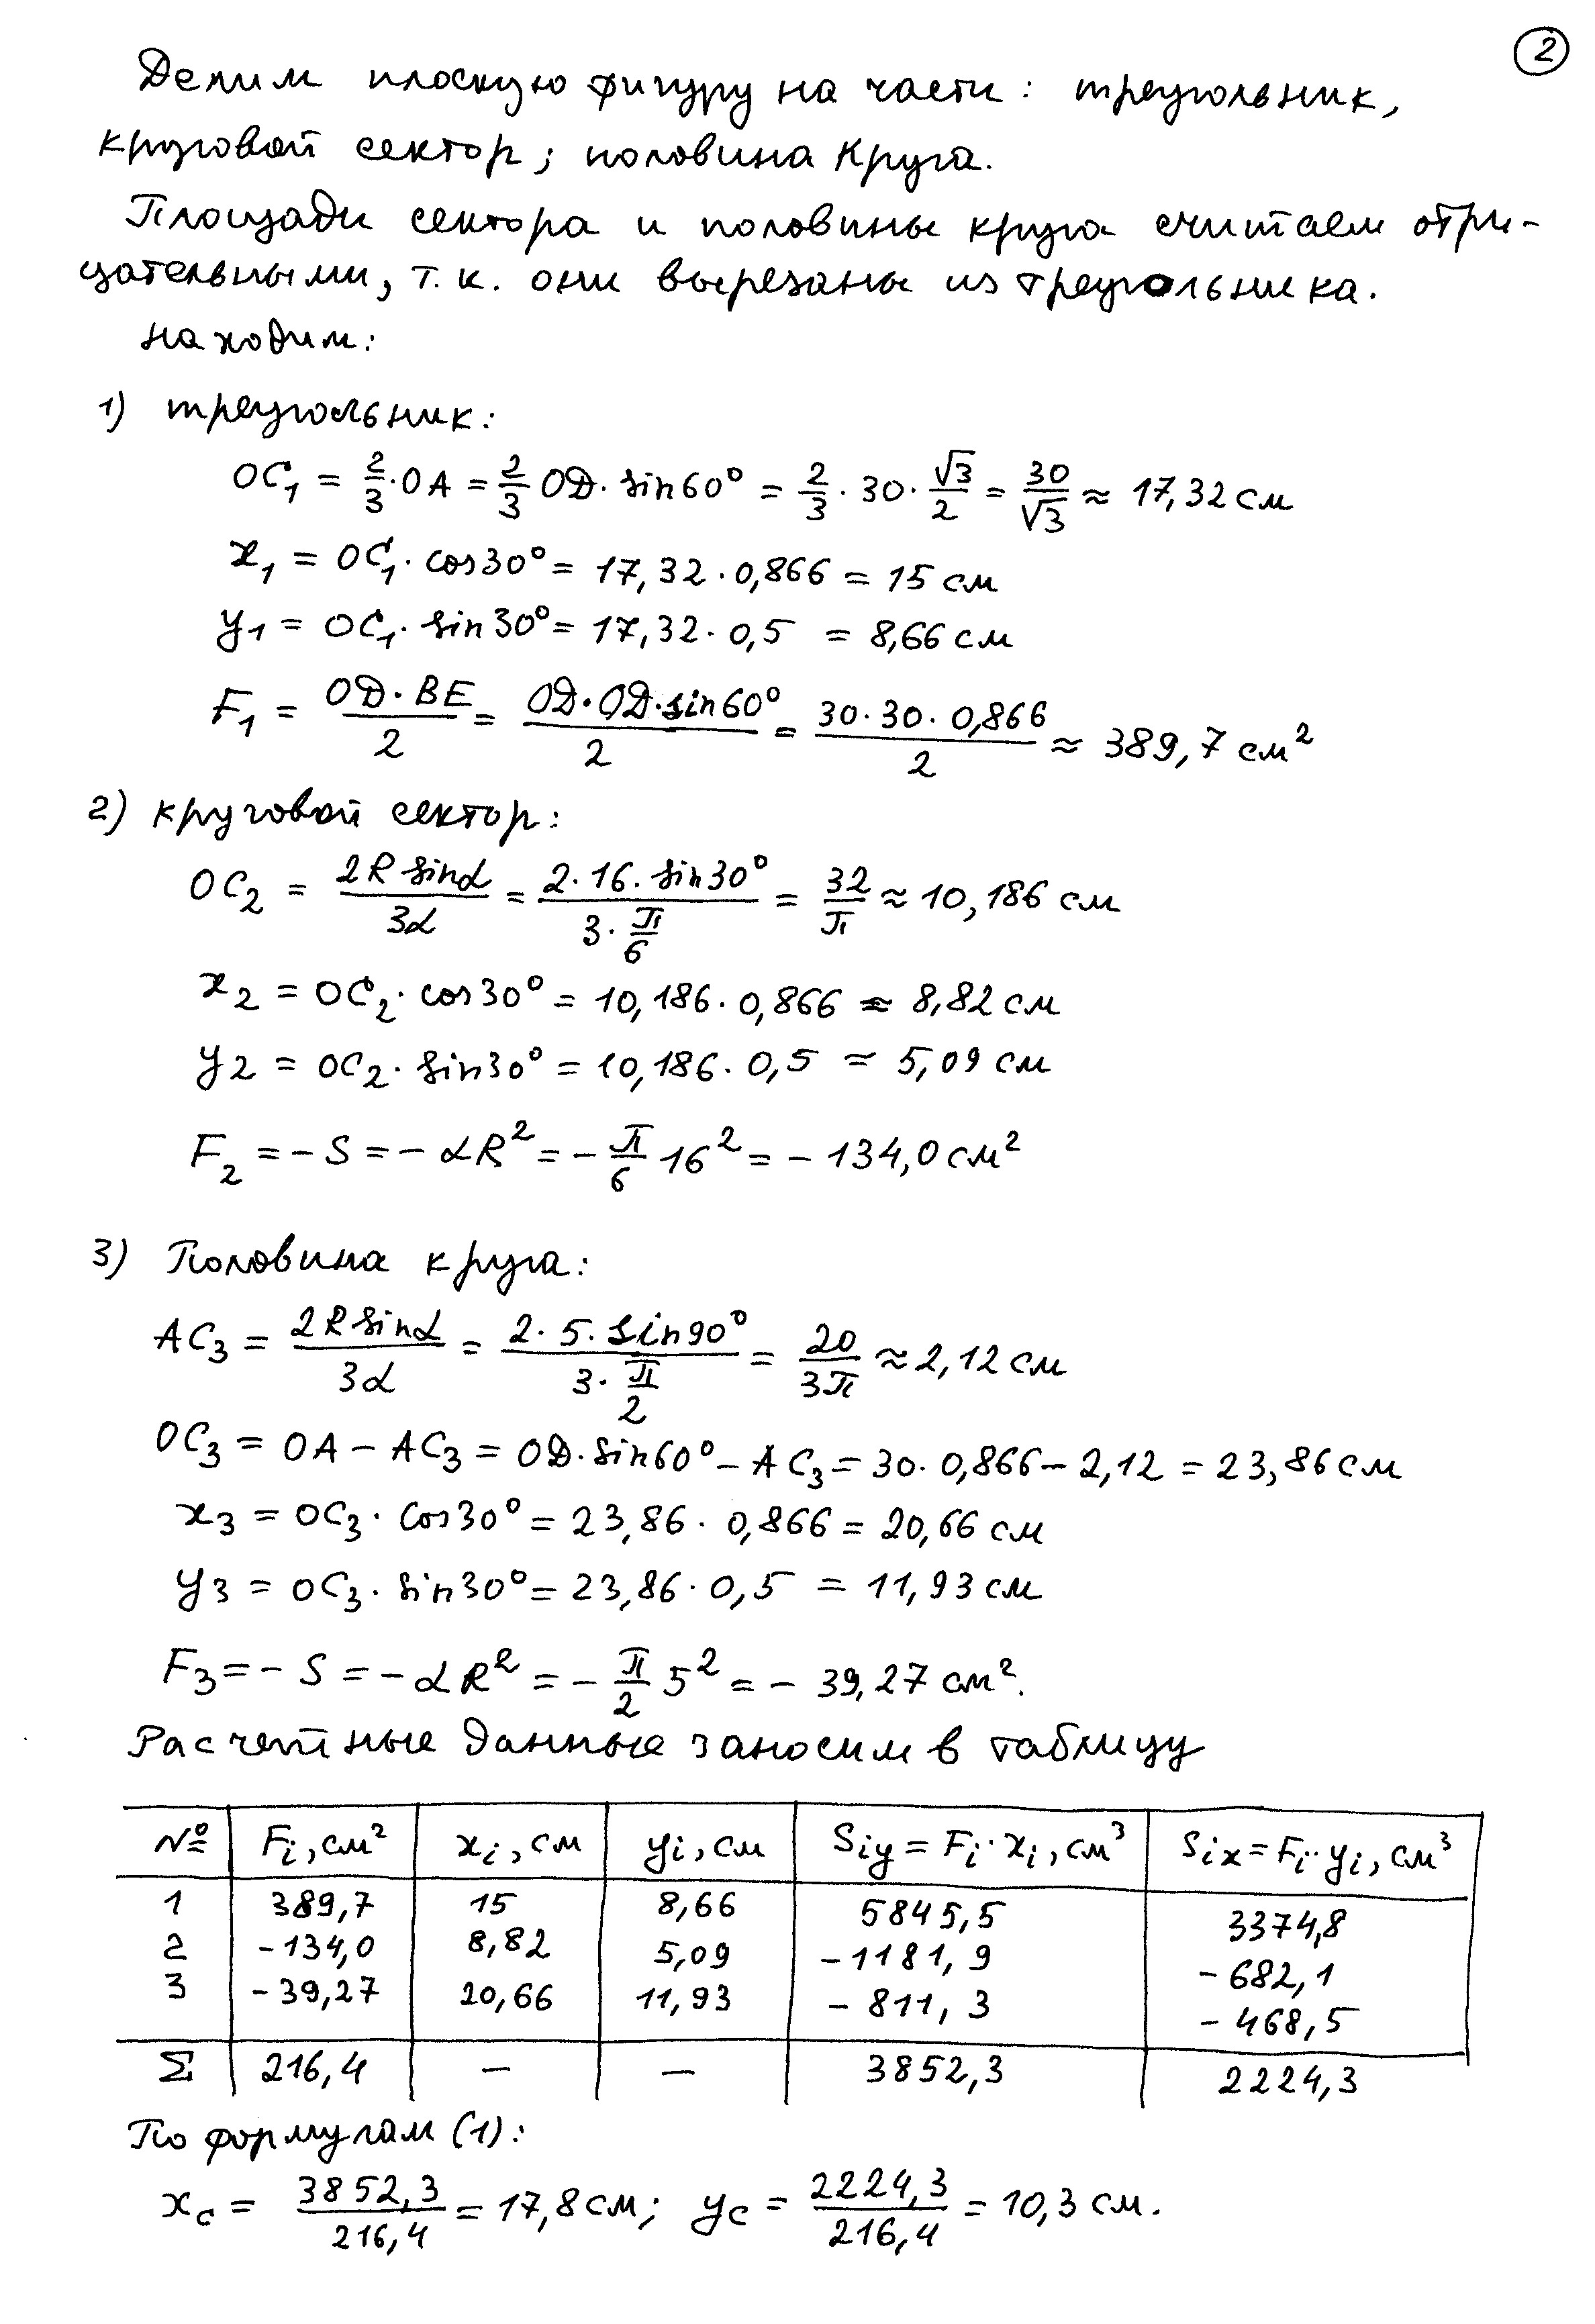 2
Делим плоскую фигуру на части: треугольник,
круговой сектор; половина круга.
Площади сектора и половины круга считаем отри-
цательными, т.к. они вырезаны из треугольника.
находим:
1) треугольник:
OC₁ = 2/3 · OA = 2/3 OD · sin60° = 2/3 · 30 · √3/2 = 30/√3 ≈ 17,32 см
x₁ = OC₁ · cos30° = 17,32 · 0,866 = 15 см
y₁ = OC₁ · sin30° = 17,32 · 0,5 = 8,66 см
F₁ = OD · BE/2 = OD · OD · sin60°/2 = 30 · 30 · 0,866/2 ≈ 389,7 см²
2) круговой сектор:
OC₂ = 2R sinα/3α = 2 · 16 · sin30°/(3 · π/6) = 32/π ≈ 10,186 см
x₂ = OC₂ · cos30° = 10,186 · 0,866 ≈ 8,82 см
y₂ = OC₂ · sin30° = 10,186 · 0,5 ≈ 5,09 см
F₂ = - S = - αR² = - π/6 16² = - 134,0 см²
3) Половина круга:
AC₃ = 2R sinα/3α = 2 · 5 · sin90°/(3 · π/2) = 20/3π ≈ 2,12 см
OC₃ = OA - AC₃ = OD · sin60° - AC₃ = 30 · 0,866 - 2,12 = 23,86 см
x₃ = OC₃ · cos30° = 23,86 · 0,866 = 20,66 см
y₃ = OC₃ · sin30° = 23,86 · 0,5 = 11,93 см
F₃ = - S = - αR² = - π/2 5² = - 39,27 см².
Расчетные данные заносим в таблицу
№ Fi, см² xi, см yi, см Siy = Fi · xi, см³ Six = Fi · yi, см³
1 389,7 15 8,66 5845,5 3374,8
2 -134,0 8,82 5,09 -1181,9 -682,1
3 -39,27 20,66 11,93 -811,3 -468,5
Σ 216,4 — — 3852,3 2224,3
По формулам (1):
xc = 3852,3/216,4 = 17,8 см; yc = 2224,3/216,4 = 10,3 см.